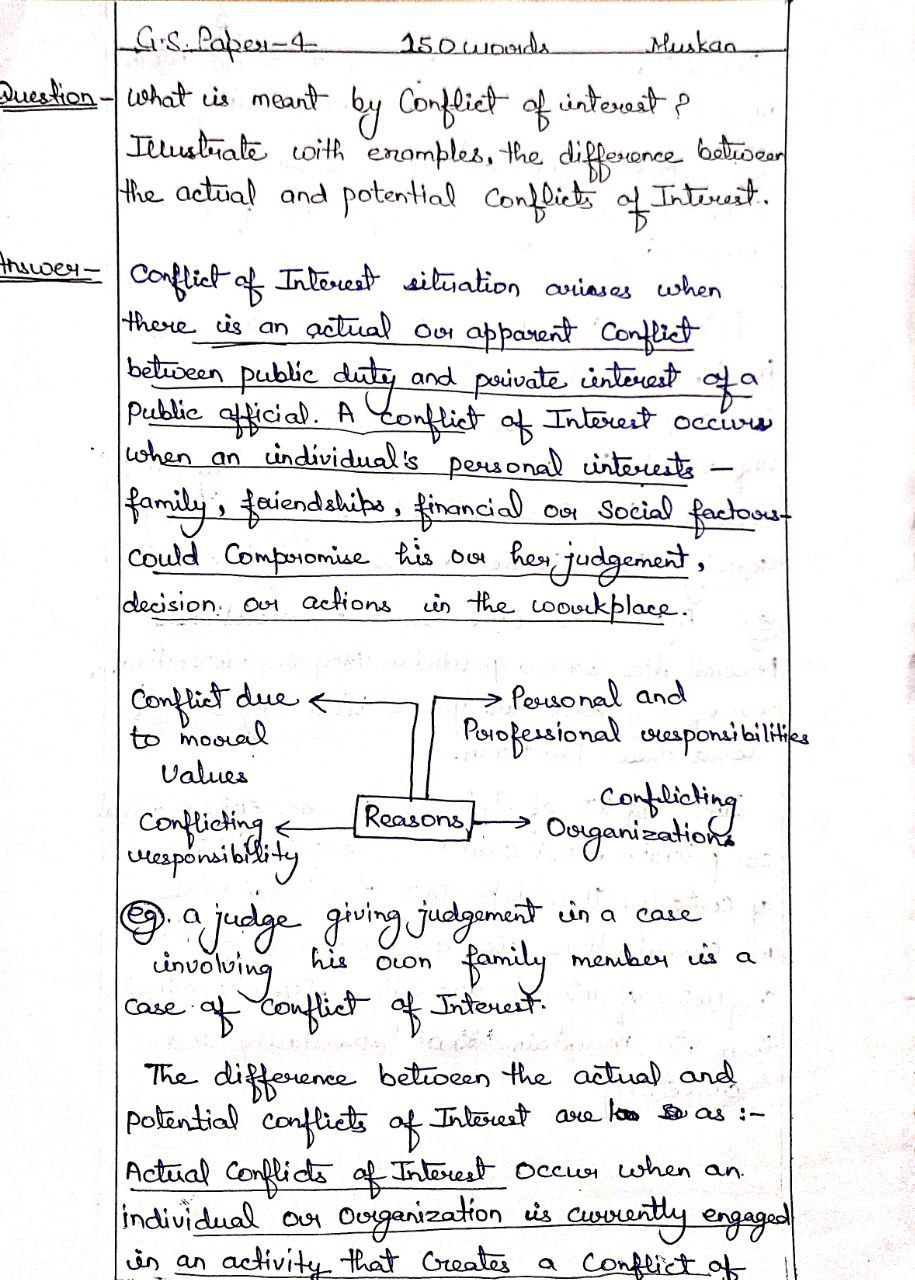 G.S. Paper-4 150 words Muskan
Question - What is meant by Conflict of interest ?
Illustrate with examples, the difference between
the actual and potential Conflicts of Interest.
Answer - Conflict of Interest situation arieses when
there is an actual or apparent Conflict
between public duty and private interest of a
Public official. A Conflict of Interest occurs
when an individual's personal interests -
family, friendships, financial or Social factors-
Could Compromise his or her judgement,
decision or actions in the workplace.
Conflict due
to moral
Values
Personal and
Professional responsibilities
Conflicting
responsibility
Reasons
Conflicting
Organizations
eg. a judge giving judgement in a case
involving his own family member is a
case of Conflict of Interest.
The difference between the actual and
potential conflicts of Interest are as :-
Actual Conflicts of Interest occur when an
individual or Organization is currently engaged
in an activity that Creates a Conflict of